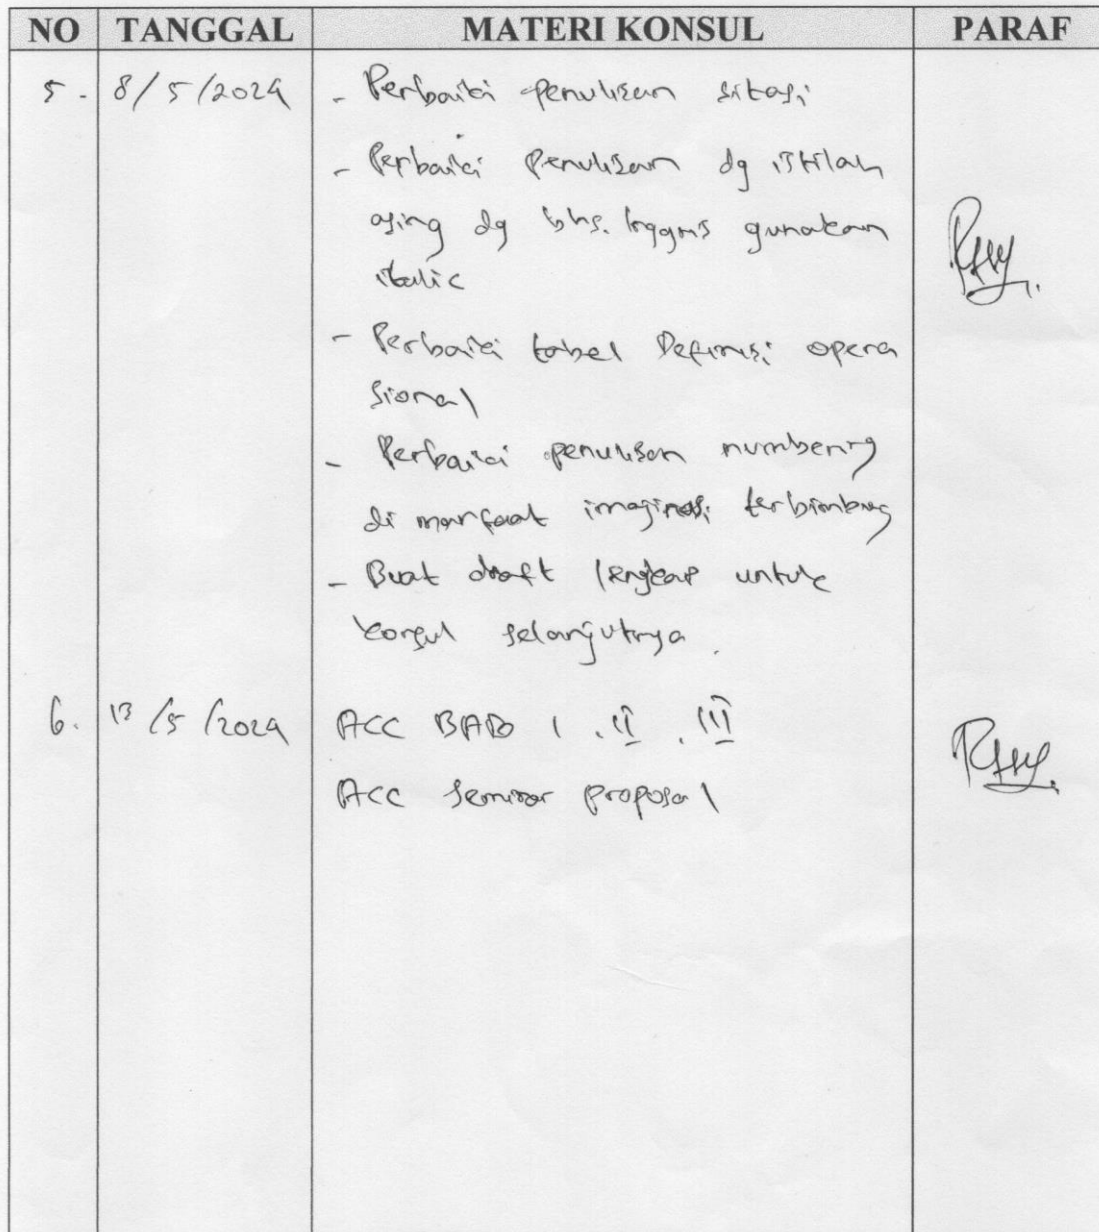 NO TANGGAL MATERI KONSUL PARAF
5. 8/5/2024 - Perbaiki penulisan sitasi
- Perbaiki penulisan dg istilah
asing dg bhs. Inggris gunakan
italic
- Perbaiki tabel Definisi opera
sional
- Perbaiki penulisan numbering
di manfaat imaginasi terbimbing
- Buat draft lengkap untuk
konsul selanjutnya.
6. 13/5/2024 ACC BAB I, II, III
ACC Seminar proposal